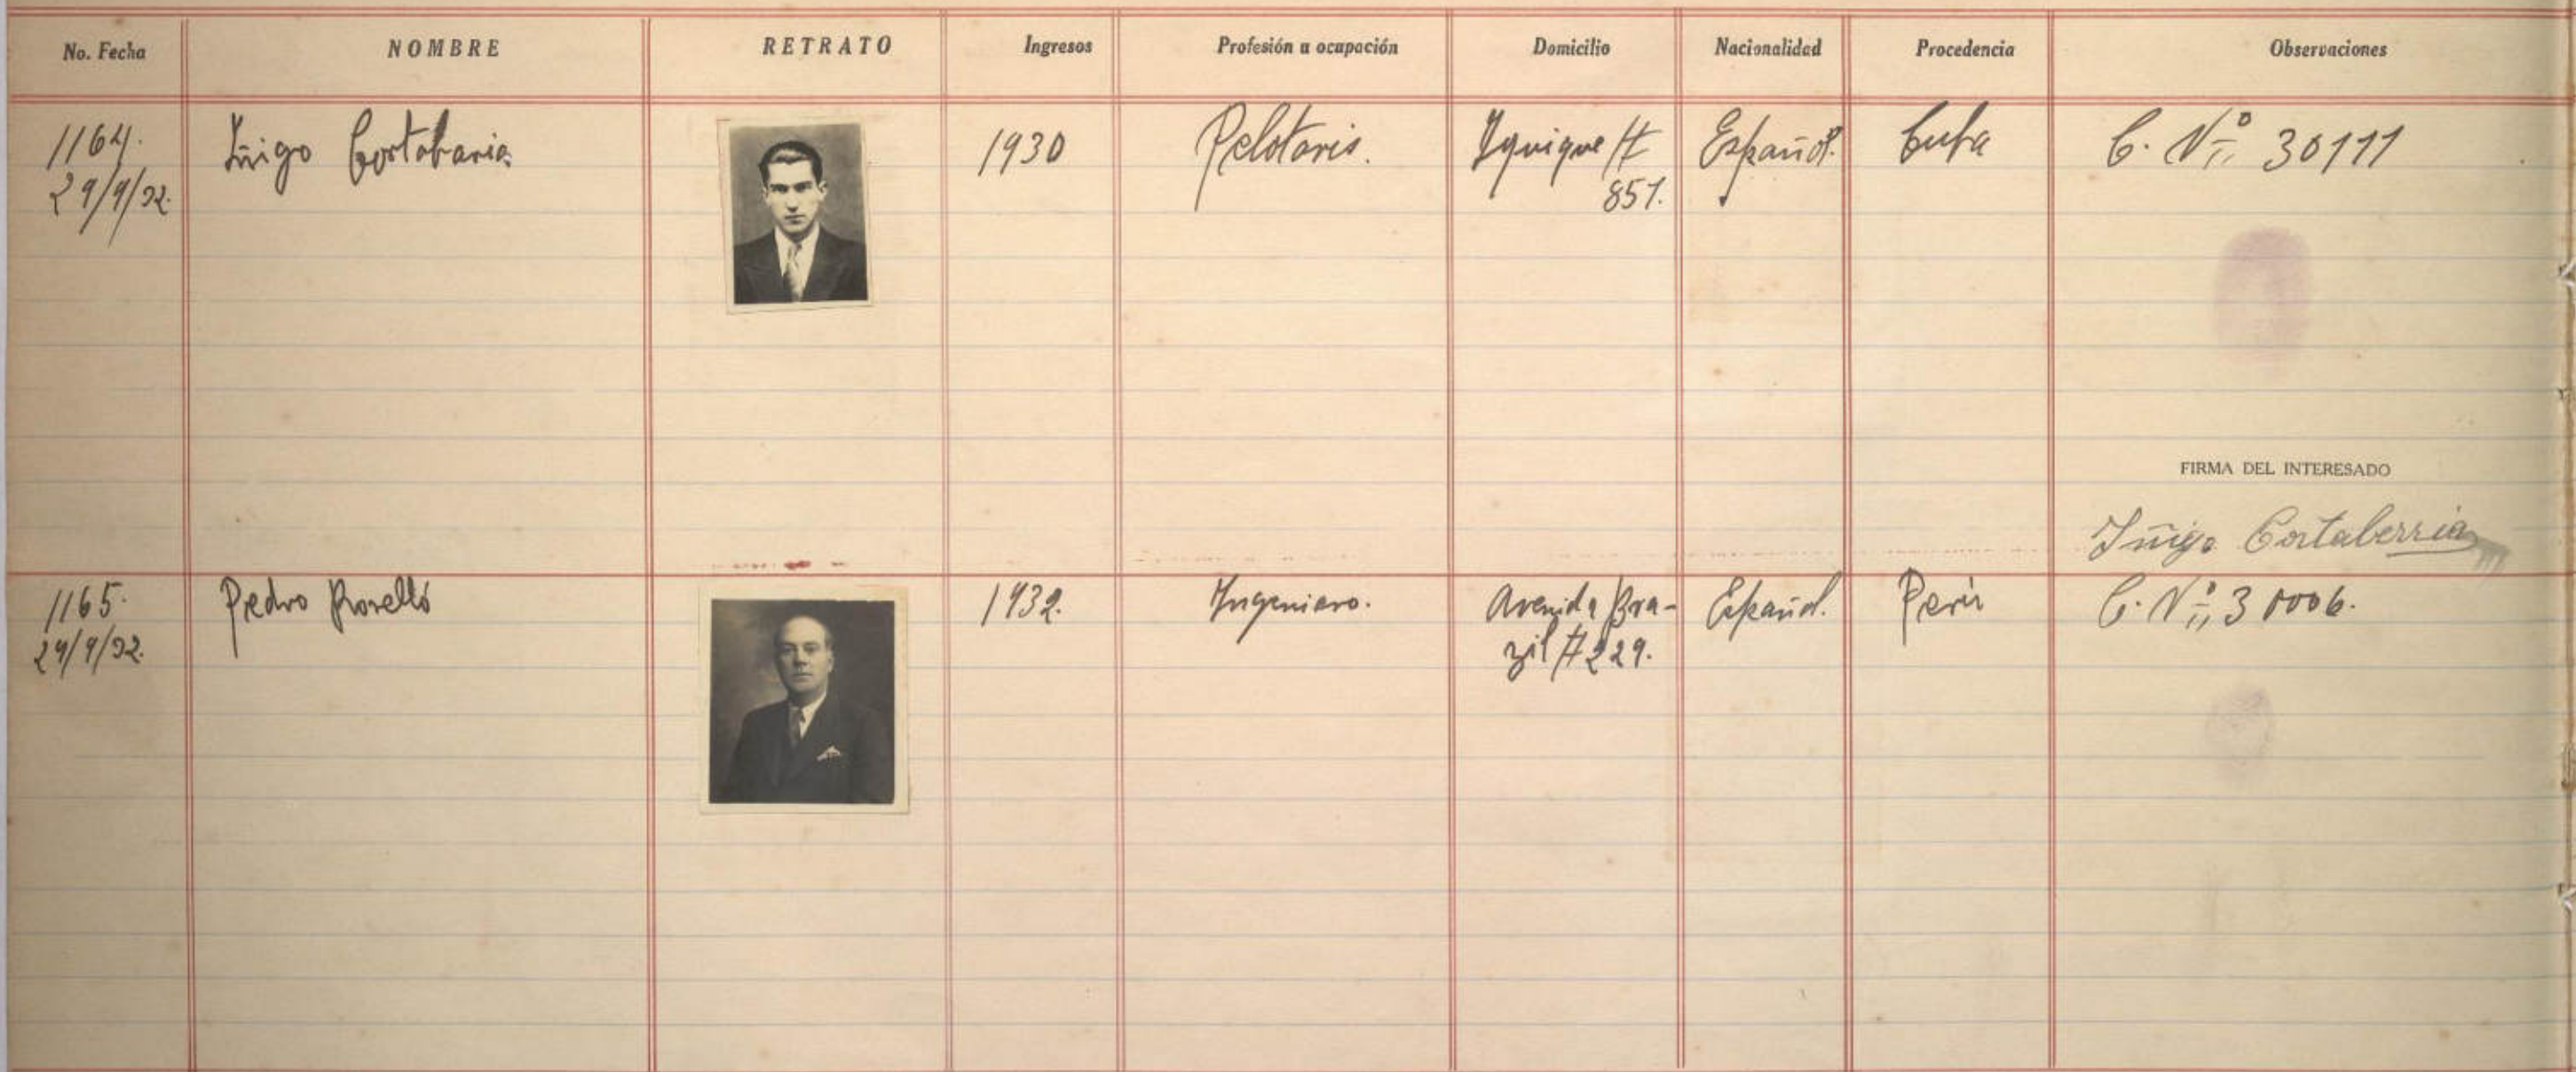 No. Fecha NOMBRE RETRATO Ingresos Profesión u ocupación Domicilio Nacionalidad Procedencia Observaciones
1164. Iñigo Cortabaria 1930 Pelotaris. Yquique # Español. Cuba C. Nº 30111
29/9/32. 851.
FIRMA DEL INTERESADO
Iñigo Cortaberria
1165. Pedro Rovelló 1932. Yngeniero. Avenida Bra- Español. Perú C. Nº 30006.
29/9/32. zil #229.